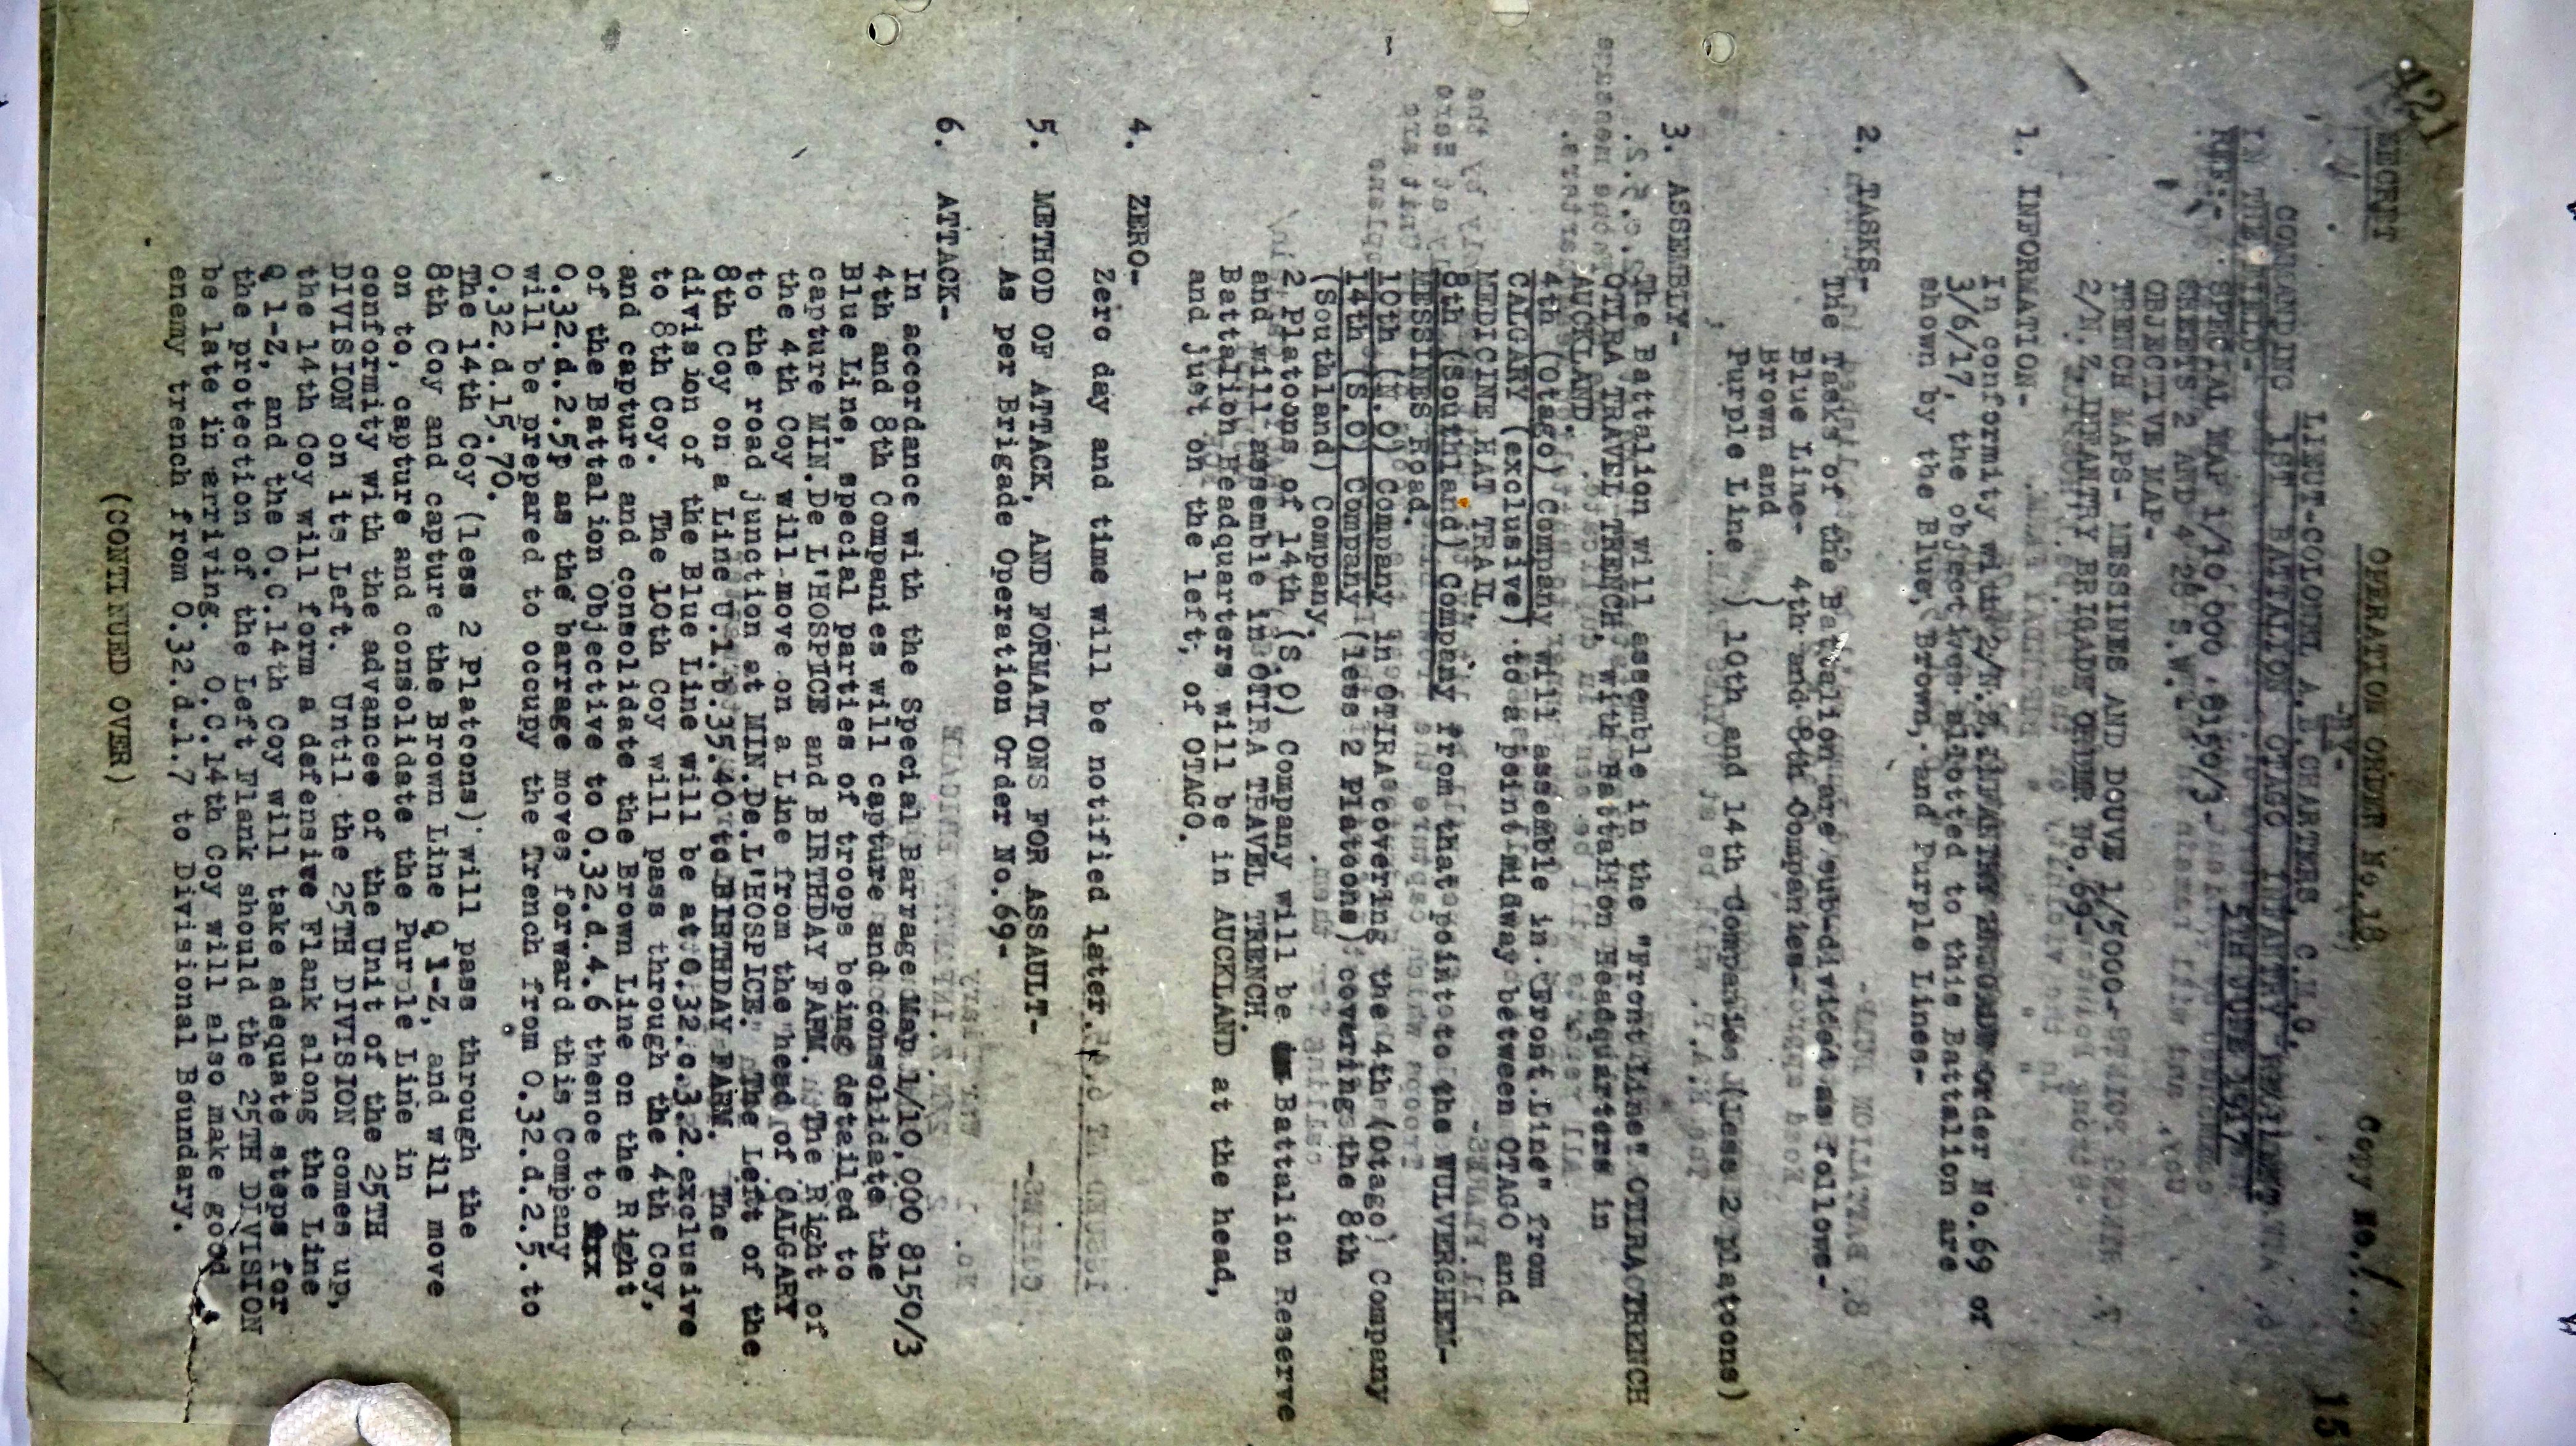 421
SECRET
OPERATION ORDER No.18
Copy No.1...
15
-BY-
LIEUT-COLONEL A.B.CHARTERS, C.M.G.
COMMANDING 1ST BATTALION OTAGO INFANTRY REGIMENT.
IN THE FIELD-
5TH JUNE 1917
REF:- SPECIAL MAP 1/10,000 8150/3-
SHEETS 2 AND 4 28 S.W.
OBJECTIVE MAP-
TRENCH MAPS- MESSINES AND DOUVE 1/5000-
2/N.Z.INFANTRY BRIGADE ORDER No.69-
1. INFORMATION-
In conformity with 2/N.Z.INFANTRY BRIGADE Order No.69 of
3/6/17, the objectives allotted to this Battalion are
shown by the Blue, Brown, and Purple Lines-
2. TASKS-
The Tasks of the Battalion are sub-divided as follows-
Blue Line- 4th and 8th Companies-
Brown and )
Purple Line ) 10th and 14th Companies (Less 2 platoons)
3. ASSEMBLY-
The Battalion will assemble in the "Front Line" OTIRA TRENCH
OTIRA TRAVEL TRENCH, with Battalion Headquarters in
AUCKLAND.
4th (Otago) Company will assemble in "Front Line" from
CALGARY (exclusive) to a point midway between OTAGO and
MEDICINE HAT TRAIL.
8th (Southland) Company from that point to the WULVERGHEM-
MESSINES Road.
10th (N.O) Company in OTIRA covering the 4th (Otago) Company
14th (S.O) Company (less 2 Platoons) covering the 8th
(Southland) Company.
2 Platoons of 14th (S.O) Company will be in Battalion Reserve
and will assemble in OTIRA TRAVEL TRENCH.
Battalion Headquarters will be in AUCKLAND at the head,
and just on the left, of OTAGO.
4. ZERO-
Zero day and time will be notified later.
5. METHOD OF ATTACK, AND FORMATIONS FOR ASSAULT-
As per Brigade Operation Order No.69-
6. ATTACK-
In accordance with the Special Barrage Map 1/10,000 8150/3
4th and 8th Companies will capture and consolidate the
Blue Line, special parties of troops being detailed to
capture MIN.De L'HOSPICE and BIRTHDAY FARM. The Right of
the 4th Coy will move on a Line from the head of CALGARY
to the road junction at MIN.De.L'HOSPICE. The Left of the
8th Coy on a Line U.1.b.35.40 to BIRTHDAY FARM. The
division of the Blue Line will be at O.32.c.3.2.exclusive
to 8th Coy. The 10th Coy will pass through the 4th Coy,
and capture and consolidate the Brown Line on the Right
of the Battalion Objective to O.32.d.4.6 thence to fxx
O.32.d.2.5p as the barrage moves forward this Company
will be prepared to occupy the Trench from O.32.d.2.5.to
O.32.d.15.70.
The 14th Coy (less 2 Platoons) will pass through the
8th Coy and capture the Brown Line Q 1-Z, and will move
on to, capture and consolidate the Purple Line in
conformity with the advance of the Unit of the 25TH
DIVISION on its Left. Until the 25TH DIVISION comes up,
the 14th Coy will form a defensive Flank along the Line
Q 1-Z, and the O.C.14th Coy will take adequate steps for
the protection of the Left Flank should the 25TH DIVISION
be late in arriving. O.C.14th Coy will also make good
enemy trench from O.32.d.1.7 to Divisional Boundary.
(CONTINUED OVER)